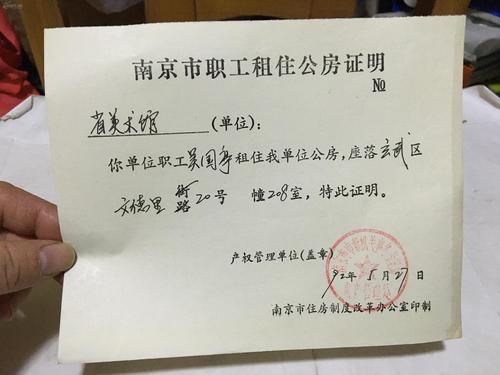 南京市职工租住公房证明
№
省美术馆(单位):
你单位职工吴国亭租住我单位公房，座落玄武区
文德里街路20号 幢208室，特此证明。
产权管理单位(盖章)
92年5月27日
南京市住房制度改革办公室印制